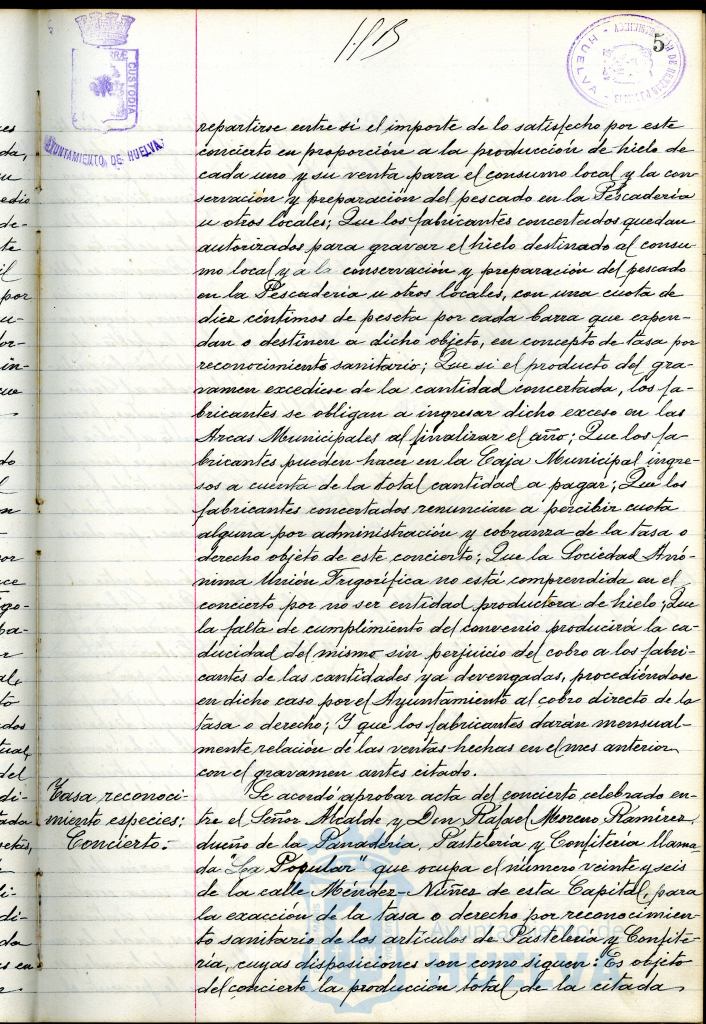 5
CUSTODIA
AYUNTAMIENTO DE HUELVA
HUELVA
repartirse entre sí el importe de lo satisfecho por este
concierto en proporción a la producción de hielo de
cada uno y su venta para el consumo local y la con-
servación y preparación del pescado en la Pescadería
u otros locales; Que los fabricantes concertados quedan
autorizados para gravar el hielo destinado al consu-
mo local y a la conservación y preparación del pescado
en la Pescadería u otros locales, con una cuota de
diez céntimos de peseta por cada barra que expen-
dan o destinen a dicho objeto, en concepto de tasa por
reconocimiento sanitario; Que si el producto del gra-
vamen excediese de la cantidad concertada, los fa-
bricantes se obligan a ingresar dicho exceso en las
Arcas Municipales al finalizar el año; Que los fa-
bricantes pueden hacer en la Caja Municipal ingre-
sos a cuenta de la total cantidad a pagar; Que los
fabricantes concertados renuncian a percibir cuota
alguna por administración y cobranza de la tasa o
derecho objeto de este concierto; Que la Sociedad Anó-
nima Unión Frigorífica no está comprendida en el
concierto por no ser entidad productora de hielo; Que
la falta de cumplimiento del convenio producirá la ca-
ducidad del mismo sin perjuicio del cobro a los fabri-
cantes de las cantidades ya devengadas, procediéndose
en dicho caso por el Ayuntamiento al cobro directo de la
tasa o derecho; Y que los fabricantes darán mensual-
mente relación de las ventas hechas en el mes anterior
con el gravamen antes citado.
Tasa reconoci-
miento especies:
Concierto.-
Se acordó aprobar acta del concierto celebrado en-
tre el Señor Alcalde y Don Rafael Moreno Ramírez,
dueño de la Panadería, Pastelería y Confitería llama-
da "La Popular" que ocupa el número veinte y seis
de la calle Méndez-Núñez de esta Capital, para
la exacción de la tasa o derecho por reconocimien-
to sanitario de los artículos de Pastelería y Confite-
ría, cuyas disposiciones son como siguen: Es objeto
del concierto la producción total de la citada
Ayuntamiento de
HUELVA